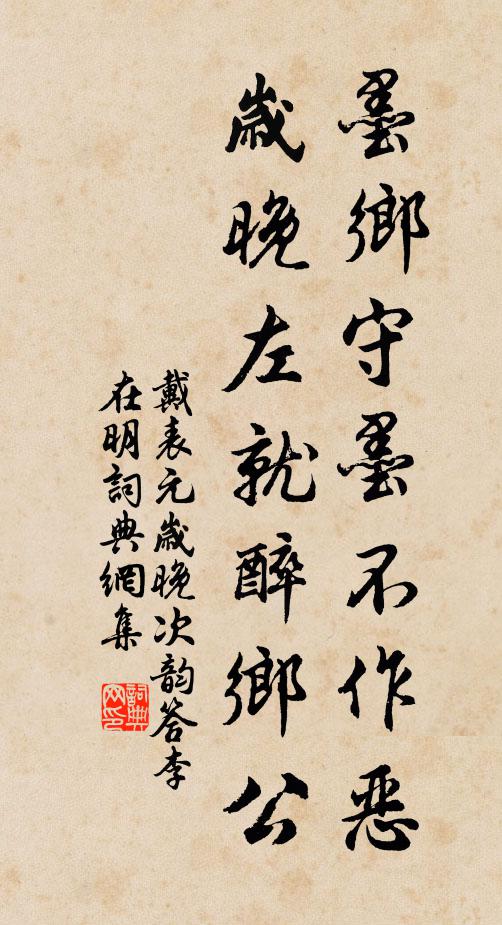 墨鄉守墨不作惡
歲晚左就醉鄉公
戴表元歲晚次韵答李
在明詞典網集
詞典网印